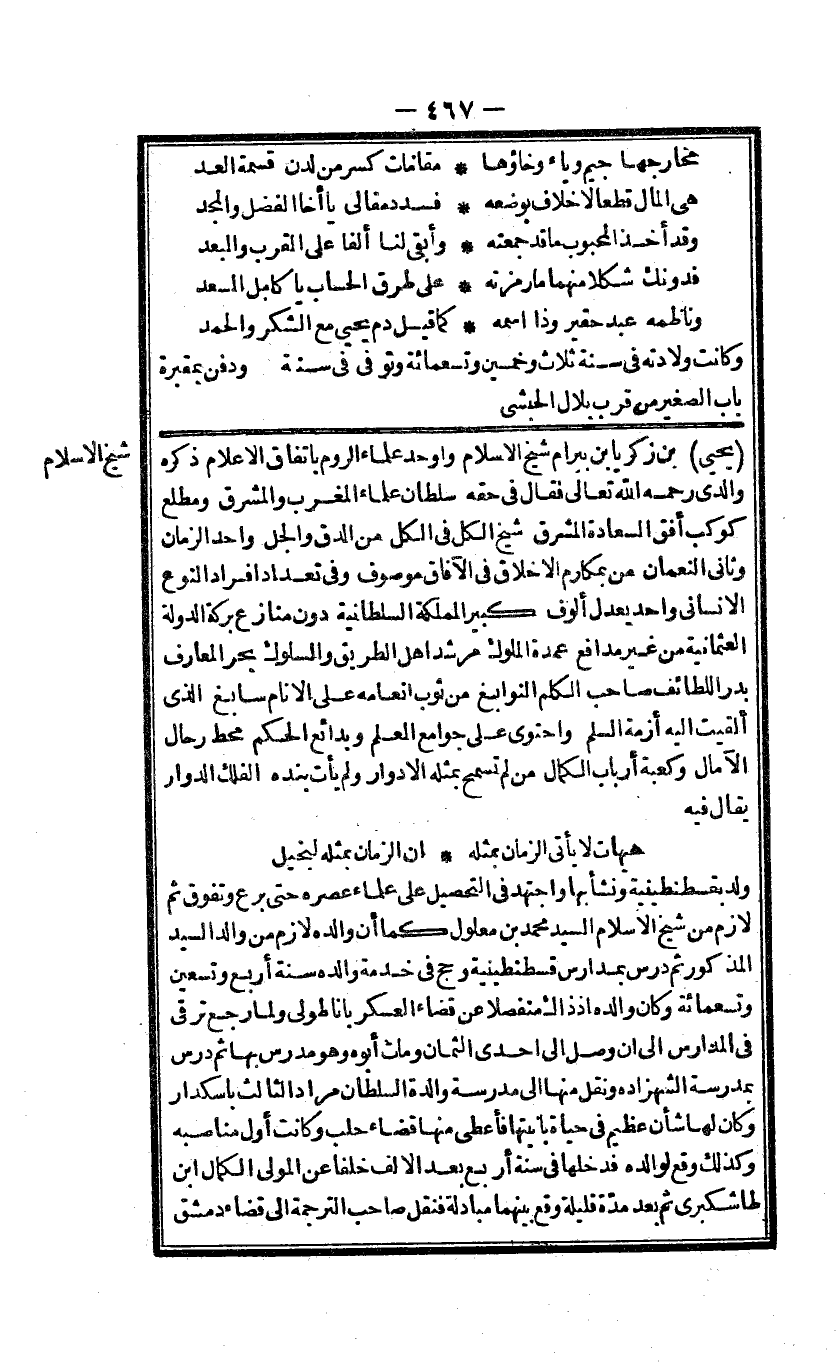 — ٤٦٧ —
مخارجها جيم وياء وخاؤها * مقامات كسر من لدن قسمة العد
هى المال قطعا لاخلاف بوضعه * فسدد مقالى يا أخا الفضل والمجد
وقد أخذ المحبوب ما قد جمعته * وأبقى لنا ألفا على القرب والبعد
فدونك شكلا منهما ما رمزته * على طرق الحساب يا كامل السعد
وناظمه عبد حقير وذا اسمه * كما قيل دم يحيى مع الشكر والحمد
وكانت ولادته فى سنة ثلاث وخمسين وتسعمائة وتوفى فى سنة ودفن بمقبرة
باب الصغير من قرب بلال الحبشى
شيخ الاسلام
(يحيى) بن زكريا بن بيرام شيخ الاسلام واوحد علماء الروم باتفاق الاعلام ذكره
والدى رحمه الله تعالى فقال فى حقه سلطان علماء المغرب والمشرق ومطلع
كوكب أفق السعادة المشرق شيخ الكل فى الكل من الدق والجل واحد الزمان
وثانى النعمان من بمكارم الاخلاق فى الآفاق موصوف وفى تعداد افراد النوع
الانسانى واحد يعدل ألوف كبير المملكة السلطانية دون منازع بركة الدولة
العثمانية من غير مدافع عمدة الملوك مرشد اهل الطريق والسلوك بحر المعارف
بدر اللطائف صاحب الكلم النوابغ من ثوب انعامه على الانام سابغ الذى
ألقيت اليه أزمة السلم واحتوى على جوامع العلم وبدائع الحكم محط رحال
الآمال وكعبة أرباب الكمال من لم تسمح بمثله الادوار ولم يأت بنده الفلك الدوار
يقال فيه
هيهات لا يأتى الزمان بمثله * ان الزمان بمثله لبخيل
ولد بقسطنطينية ونشأ بها واجتهد فى التحصيل على علماء عصره حتى برع وتفوق ثم
لازم من شيخ الاسلام السيد محمد بن معلول كما أن والده لازم من والد السيد
المذكور ثم درس بمدارس قسطنطينية وحج فى خدمة والده سنة أربع وتسعين
وتسعمائة وكان والده اذ ذاك منفصلا عن قضاء العسكر باناطولى ولما رجع ترقى
فى المدارس الى ان وصل الى احدى الثمان ومات أبوه وهو مدرس بها ثم درس
بمدرسة الشهزاده ونقل منها الى مدرسة والدة السلطان مراد الثالث باسكدار
وكان لها شأن عظيم فى حياة بانيتها فأعطى منها قضاء حلب وكانت أول مناصبه
وكذلك وقع لوالده فدخلها فى سنة أربع بعد الالف خلفا عن المولى الكمال ابن
طاشكبرى ثم بعد مدّة قليلة وقع بينهما مبادلة فنقل صاحب الترجمة الى قضاء دمشق